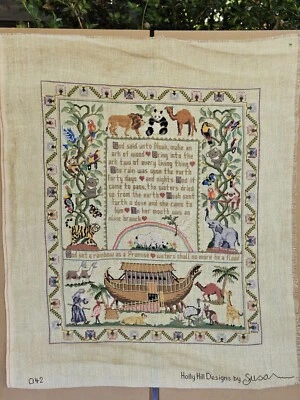 God said unto Noah, make an
ark of wood ♥ Bring into the
ark two of every living thing ♥
The rain was upon the earth
forty days ♥ and nights ♥ And it
came to pass, the waters dried
up from the earth ♥ Noah sent
forth a dove and she came to
him ♥ In her mouth was an
olive branch ♥
God set a rainbow as a Promise ♥ waters shall no more be a flood
042
Holly Hill Designs by Susan